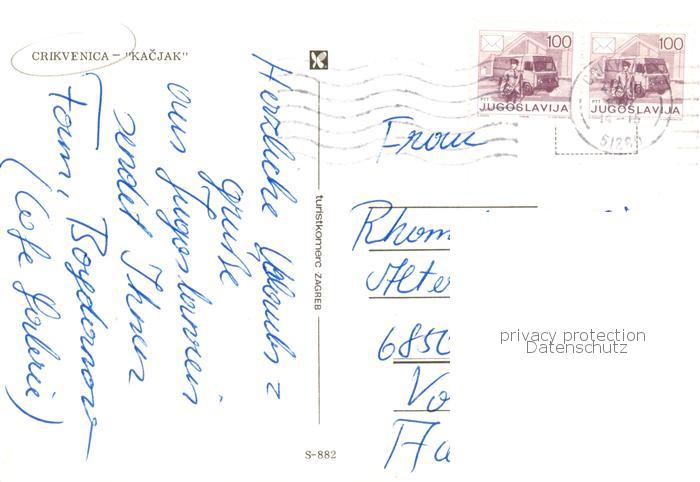 CRIKVENICA – "KAČJAK"
Herzliche Urlaubs=
grüße
aus Jugoslawien
sendet Ihnen
Fam.
(Cafe Galerie)
turistkomerc ZAGREB
S-882
100
PTT JUGOSLAVIJA
100
PTT JUGOSLAVIJA
51260
Frau
Rhom
Alte
6850
Do
Au
privacy protection
Datenschutz